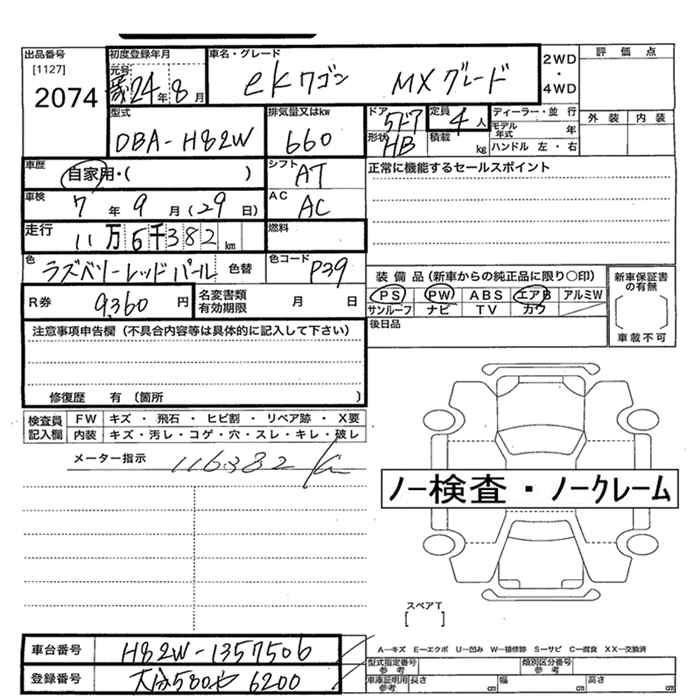 出品番号
[1127]
2074
初度登録年月
元号
24年8月
車名・グレード
ekワゴン MXグレード
2WD
・
4WD
評価点
外装 内装
型式
DBA-H82W
排気量又はkw
660
ドア
5ドア
形状
HB
定員
4人
積載
kg
ディーラー・並行
モデル年式 年
ハンドル 左・右
車歴
自家用・( )
シフト
AT
正常に機能するセールスポイント
車検
7年9月(29日)
AC
AC
走行
11万6千382km
燃料
色
ラズベリーレッドパール
色替
色コード
P39
装備品(新車からの純正品に限り○印)
PS PW ABS エアB アルミW
サンルーフ ナビ TV カワ
後日品
新車保証書の有無
車載不可
R券
9,360円
名変書類有効期限
月 日
注意事項申告欄(不具合内容等は具体的に記入して下さい)
修復歴 有(箇所 )
検査員記入欄
FW キズ・飛石・ヒビ割・リペア跡・X要
内装 キズ・汚レ・コゲ・穴・スレ・キレ・破レ
メーター指示
116382km
ノー検査・ノークレーム
スペアT
[ ]
車台番号
H82W-1357506
登録番号
大分580や6200
A…キズ E…エクボ U…凹み W…補修跡 S…サビ C…腐食 XX…交換済
型式指定番号
参考
類別区分番号
参考
車庫証明用参考
長さ cm 幅 cm 高さ cm